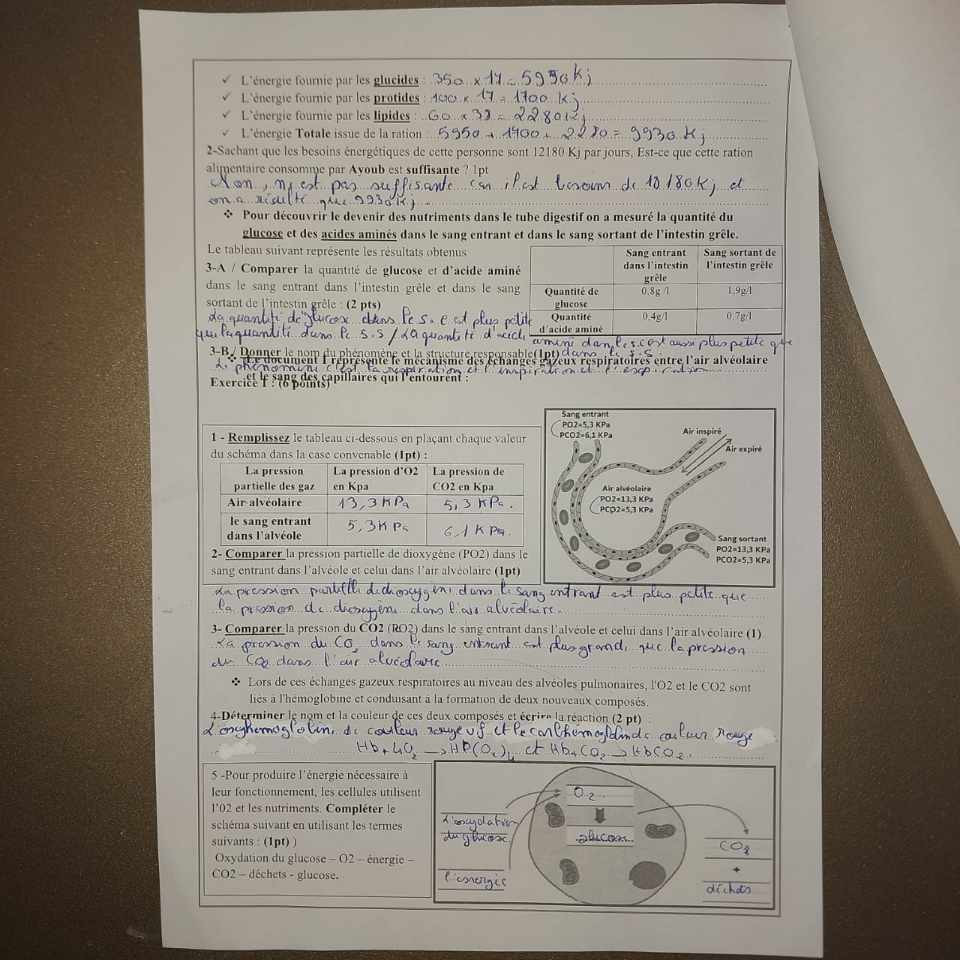 ✓ L'énergie fournie par les glucides : 350 x 17 = 5950 Kj
✓ L'énergie fournie par les protides : 100 x 17 = 1700 Kj
✓ L'énergie fournie par les lipides : 60 x 38 = 2280 Kj
✓ L'énergie Totale issue de la ration : 5950 + 1700 + 2280 = 9930 Kj
2-Sachant que les besoins énergétiques de cette personne sont 12180 Kj par jours, Est-ce que cette ration
alimentaire consomme par Ayoub est suffisante ? 1pt
Non, n'est pas suffisante car il est besoin de Kj et
on a que 9930 Kj.
❖ Pour découvrir le devenir des nutriments dans le tube digestif on a mesuré la quantité du
glucose et des acides aminés dans le sang entrant et dans le sang sortant de l'intestin grêle.
Le tableau suivant représente les résultats obtenus
3-A / Comparer la quantité de glucose et d'acide aminé
dans le sang entrant dans l'intestin grêle et dans le sang
sortant de l'intestin grêle : (2 pts)
Sang entrant dans l'intestin grêle
Sang sortant de l'intestin grêle
Quantité de glucose 0,8g/l 1,9g/l
Quantité d'acide aminé 0,4g/l 0.7g/l
La quantité de glucose dans le s.e est plus petite
que la quantité dans le s.s / La quantité d'acide aminé dans le s.e est aussi plus petite que
dans le s.s.
3-B / Donner le nom du phénomène et la structure responsable(1pt)
❖ Le document 1 représente le mécanisme des échanges gazeux respiratoires entre l'air alvéolaire
et le sang des capillaires qui l'entourent :
Le phénomène c'est la respiration et l'inspiration et l'expiration
Exercice 1 : (6 points)
1 - Remplissez le tableau ci-dessous en plaçant chaque valeur
du schéma dans la case convenable (1pt) :
La pression partielle des gaz
La pression d'O2 en Kpa
La pression de CO2 en Kpa
Air alvéolaire 13,3 KPa 5,3 KPa.
le sang entrant dans l'alvéole 5,3 KPa 6,1 KPa.
Sang entrant
PO2=5,3 KPa
PCO2=6,1 KPa
Air inspiré
Air expiré
Air alvéolaire
PO2=13,3 KPa
PCO2=5,3 KPa
Sang sortant
PO2=13,3 KPa
PCO2=5,3 KPa
2- Comparer la pression partielle de dioxygène (PO2) dans le
sang entrant dans l'alvéole et celui dans l'air alvéolaire (1pt)
La pression partielle dans le sang entrant est plus petite que
la pression de dioxygène dans l'air alvéolaire.
3- Comparer la pression du CO2 (RO2) dans le sang entrant dans l'alvéole et celui dans l'air alvéolaire (1)
La pression du CO2 dans le sang entrant est plus grande que la pression
du CO2 dans l'air alvéolaire
❖ Lors de ces échanges gazeux respiratoires au niveau des alvéoles pulmonaires, l'O2 et le CO2 sont
liés à l'hémoglobine et conduisant à la formation de deux nouveaux composés.
4-Déterminer le nom et la couleur de ces deux composés et écrire la réaction (2 pt)
L'oxyhemoglobine de couleur rouge vif et le de couleur rouge
Hb + 4O2 → Hb(O2)4 et Hb + CO2 → HbCO2.
5 -Pour produire l'énergie nécessaire à
leur fonctionnement, les cellules utilisent
l'02 et les nutriments. Compléter le
schéma suivant en utilisant les termes
suivants : (1pt) )
Oxydation du glucose – O2 – énergie –
CO2 – déchets - glucose.
O2
glucose
L'oxydation
du glucose
l'energie
CO2
+
déchets